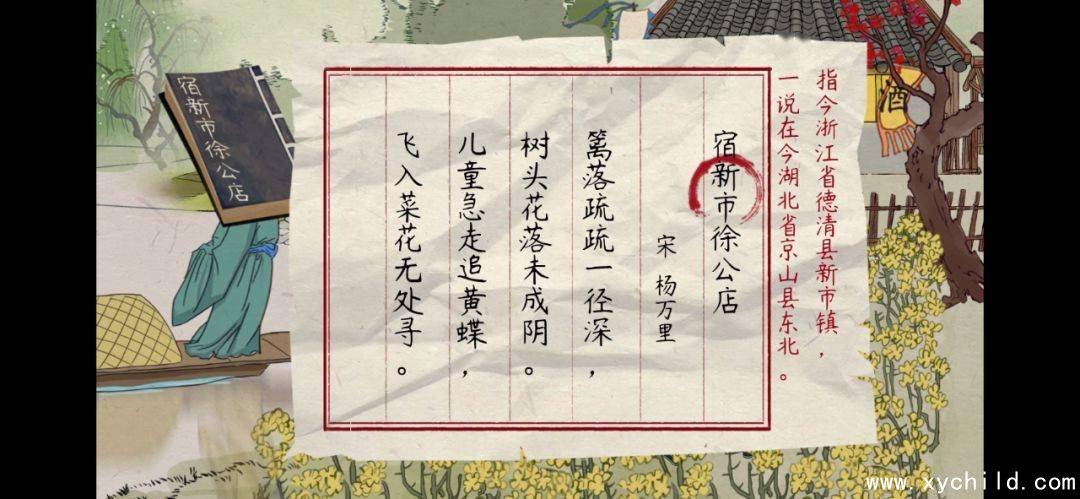 宿新市徐公店
宋 杨万里
篱落疏疏一径深，
树头花落未成阴。
儿童急走追黄蝶，
飞入菜花无处寻。
指今浙江省德清县新市镇，
一说在今湖北省京山县东北。
宿新市徐公店
酒
www.xychild.com